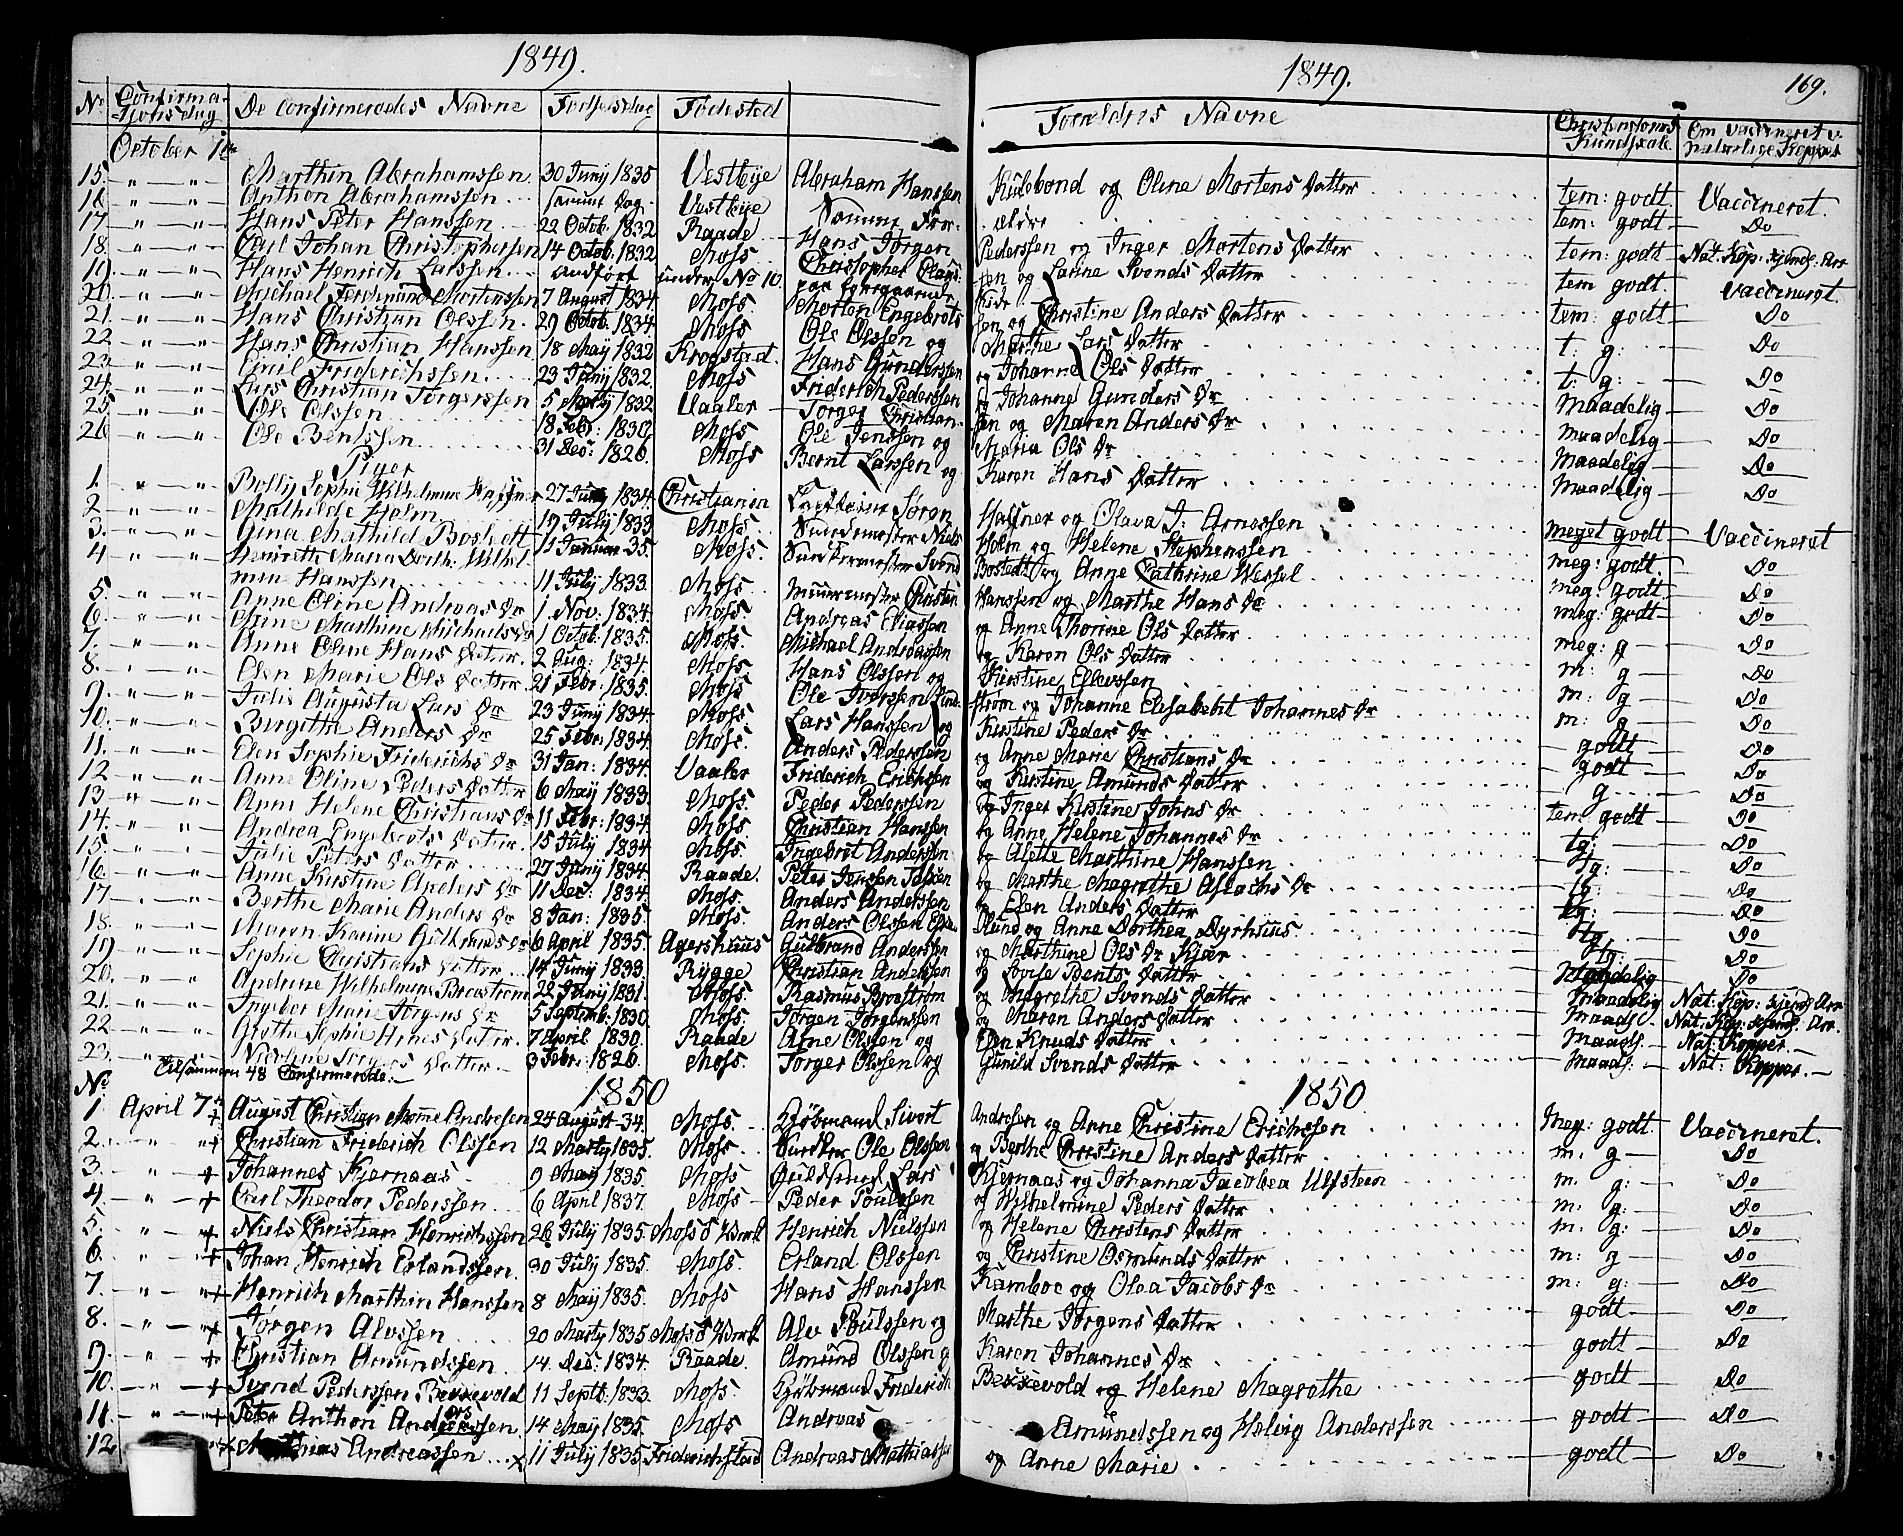 1849.
1849.
169.
No Confirmationsdag De Confirmeredes Navne Fødselsdag Fødested Forældres Navne Christendoms Kundskab Om Vaccineret v. naturlige Kopper
October 1de
15. " — " Marthin Abrahamssen 30 Juny 1835 Vestbye Abraham Hanssen Kulebond og Oline Mortens Datter tem: godt Vaccineret.
16. " — " Anthon Abrahamssen samme Dag Vestbye Samme Forældre tem: godt Do
17 " — " Hans Peter Hanssen 22 Octob. 1832 Raade Hans Jørgen Pederssen og Inger Mortens Datter tem: godt Nat: Kop: kjends: Arr
18. " — " Carl Johan Christophersen 14 Octob. 1832 Moss Christopher Claussen og Larine Svends Datter tem godt Vaccineret.
19. " — " Hans Henrich Larssen anført under No 10. paa foregaaende Side
20. " — " Michael Ferdinand Mortenssen 7 August 1834 Moss Morten Engebretssen og Christine Anders Datter tem: godt Do
21. " — " Hans Christian Olssen 29 Octob. 1834. Moss Ole Olssen og Marthe Lars Datter t: g: Do
22 " — " Hans Christian Hanssen 18 May 1832 Krogstad Hans Gunderssen og Johanne Ols Datter t: g: Do
23. " — " Emil Friderichssen 23 Juny 1832. Moss Friderich Pederssen og Johanne Gunders Dr Maadelig Do
24. " — " Lars Christian Jørgenssen 5 Marty 1832 Vaaler Jørgen Christiansen og Maren Anders Dr Maadelig Do
25. " — " Ole Olssen 18 Febr: 1830. Moss Ole Jenssen og Maria Ols Dr Maadelig Do
26 " — " Ole Bentssen 31 Dec: 1826. Moss Bernt Larssen og Karen Hans Datter Maadelig Do
Piger
1. " " Bolly Sophie Wilhelmine 27 Juny 1834. Christiania Søren Haffner og Olava J. Arnessen meget godt Vaccineret
2 " — " Mathilde Holm 19 July 1833 Moss Niels Holm og Helene Stephenssen meg: godt. Do
3. " — " Gina Mathild Bostedt 11 Januar 35. Moss Svend Bostedt og Anne Cathrine Wessel meg: godt. Do
4 " — " Henriette Maria Dorth: Wilhelmine Hanssen 11 July 1833 Moss Muurmester Christian Hanssen og Marthe Hans Dr meg: godt Do
5. " " Anne Oline Andreas Dr 1. Nov: 1834. Moss. Andreas Eliassen og Anne Thorine Ols Datter meg: g Do
6. " — " Marthine Michaels Dr 1 Octob. 1835. Moss. Michael Andreassen og Karen Ols Datter m: g Do
7. " — " Anne Oline Hans Datter. 2 Aug: 1834. Moss Hans Olssen og Kirstine Ellevssen m: g Do
8. Elen Marie Ols Datter 21 Febr: 1835. Moss Ole Iverssen Lindstrøm og Johanne Elisabeht Johannes Dr m: g Do
9. " — " Julie Augusta Lars Dr 23 Juny 1834 Moss. Lars Hanssen og Kirstine Peders Dr godt Do
10. " — " Birgitte Anders Dr 25 Febr: 1834. Moss. Anders Pederssen og Anne Marie Christians Dr godt Do
11. " — " Elen Sophie Friderichs Dr 31 Jan: 1834. Vaaler Friderich Erichssen og Kirstine Amunds Datter g Do
12 " — " Anne Oline Peders Datter 6 May 1833. Moss. Peder Pederssen og Inger Kirstine Johns Dr tem godt Do
13 " — " Anne Helene Christians Dr 11 Febr: 1834. Moss. Christian Hanssen og Anne Helene Johannes Dr tg: Do
14. " — " Andrea Engebrets Datter. 15 July 1834 Moss. Ingebret Anderssen og Alette Marthine Hanssen tg: Do
15 " — " Julie Peters Datter 27 Juny 1834 Raade. Peter Jenssen og Marthe Magrethe Aslachs Dr tg: Do
16. " — " Anne Kirstine Anders Dr 11 Dec: 1834. Moss. Anders Anderssen og Elen Anders Datter tg: Do
17. " Berthe Marie Anders Dr 8 Jan: 1835. Moss. Anders Olssen Ekelund og Anne Dorthea Dyrhsius tg. Do
18. " — " Maren Karine Gulbrands Dr 6 April 1835. Agershuus Gulbrand Anderssen og Marthine Ols Dr Kjær tg: Do
19 " — " Sophie Christians Datter 14 Juny 1833. Rygge Christian Anderssen og Lovise Bents Datter Maadelig Do
20. " — " Andrine Wilhelmine Broestrøm 22 Juny 1831. Moss. Rasmus Broestrøm og Magrethe Svends Datter Maadelig Nat: Kop: kjends Arr
21. " — " Ingebor Marie Jørgens Dr 5 Septemb. 1830. Moss Jørgen Jørgenssen og Maren Anders Datter Maadl. Nat: Kop: kjends. Arr.
22 " " Grethe Sophie Arnes Datter. 7 April 1830. Raade Arne Olssen og Elen Knuds Datter Maadl. Nat: Kopper.
23. " — " Nicoline Jørgens Datter 3 Febr: 1826. Moss. Jørgen Olssen og Gunild Svends Datter Maadl: Nat: Kopper.
Tilsammen 48 Confirmerede.
No 1850 1850.
1 April 7de + August Christian Momme Andresen 24 August 34. Moss. Kjøbmand Sivert Andresen og Anne Christine Erichssen Meg: godt. Vaccineret.
2. " + Christian Friderich Olssen 12 Marty 1835. Moss. Ole Olssen og Berthe Christine Anders Datter m. g Do
3. " + Johannes Kjernaas 9 May 1835. Moss Guldsmed Lars Kjernaas og Johanna Jacobea Ulfsteen m. g: Do
4. " + Carl Theodor Pederssen 6 April 1837. Moss Peder Poulssen og Wilhelmine Peders Datter m: g: Do
5. " + Niels Christian Henrichssen 26 July 1835. Moss Værk Henrich Nielssen og Helene Christens Datter m: g: Do
6. " + Johan Henrich Erlandssen. 30 July 1835. Moss. Erland Olssen og Christine Osmunds Datter m: g Do
7. " + Henrich Marthin Hanssen 8 May 1835. Moss Hans Hanssen Kamboe og Olea Jacobs Dr m: g: Do
8. " + Jørgen Alvssen 20 Marty 1835. Moss Værk Alv Poulssen og Marthe Jørgens Datter godt Do
9. " + Christian Amundssen 14. Dec: 1834. Raade Amund Olssen og Karen Johannes Dr godt Do
10. " + Svend Pederssen Brevevold 11 Septb. 1833. Moss. Kjøbmand Friderich Brevevold og Helene Magrethe godt Do
11 " + Peter Anthon Andreassen 14 May 1835. Moss Andreas Amundssen og Helvig Anderssen godt Do
12 " + Mathias Andreassen 11 July 1835. Friderichstad Andreas Mathiassen og Anne Marie godt Do